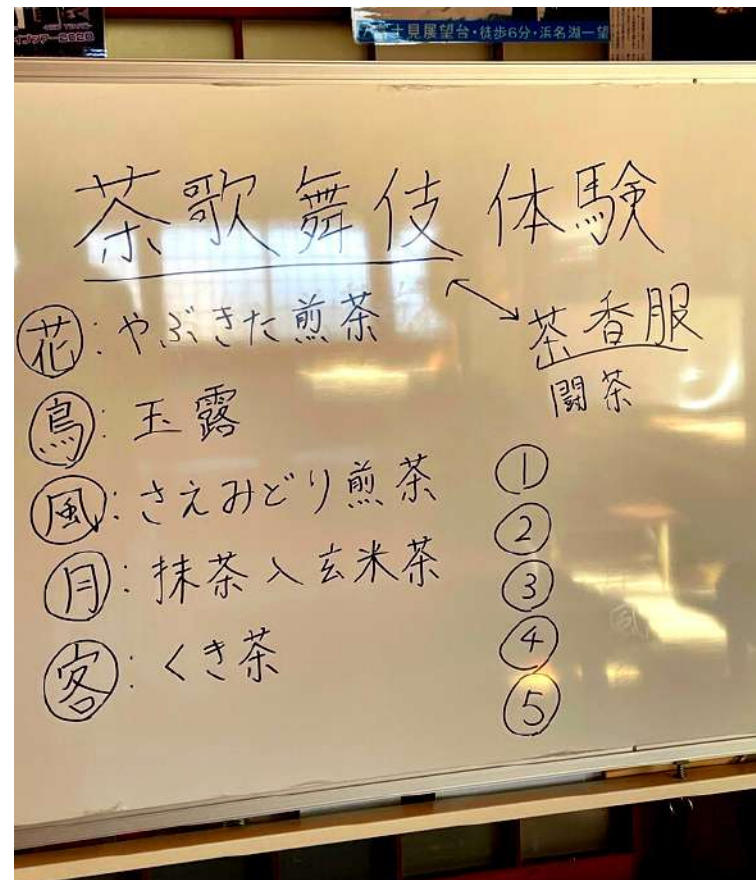 士見展望台・徒歩6分・浜名湖一望
茶歌舞伎 体験
花:やぶきた煎茶
茶香服
鳥:玉露
闘茶
風:さえみどり煎茶
月:抹茶入玄米茶
客:くき茶
①
②
③
④
⑤